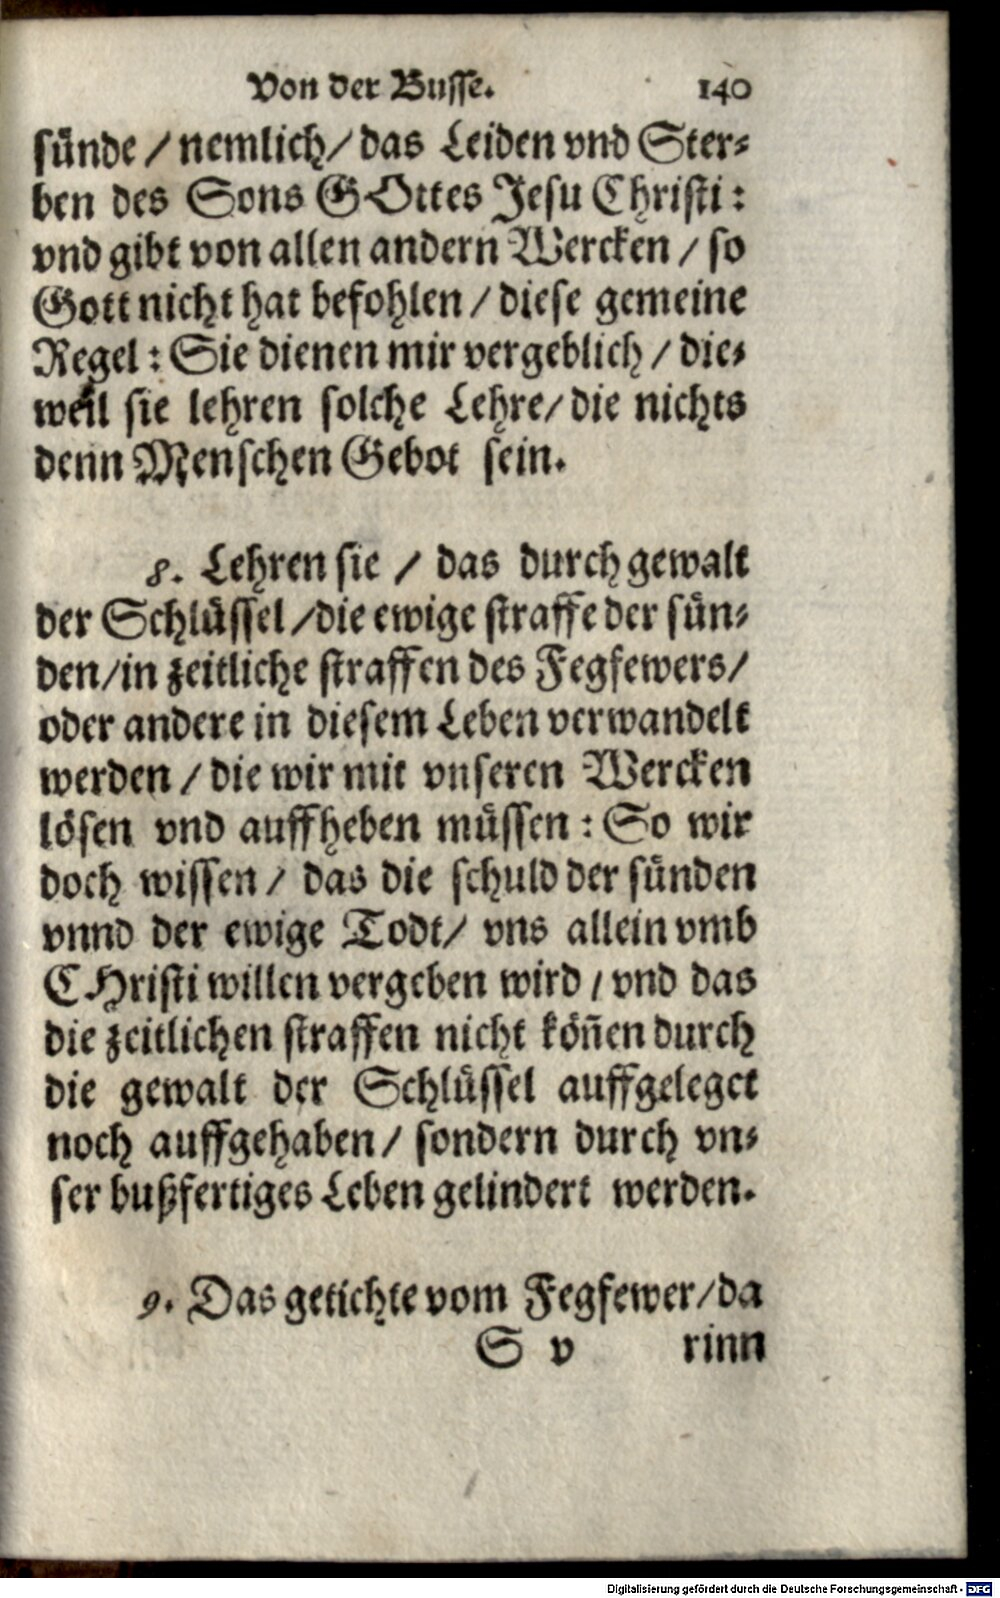 Von der Busse. 140
sünde / nemlich / das Leiden vnd Ster-
ben des Sons GOttes Jesu Christi :
vnd gibt von allen andern Wercken / so
Gott nicht hat befohlen / diese gemeine
Regel : Sie dienen mir vergeblich / die-
weil sie lehren solche Lehre / die nichts
denn Menschen Gebot sein.
8. Lehren sie / das durch gewalt
der Schlüssel / die ewige straffe der sün-
den / in zeitliche straffen des Fegfewers /
oder andere in diesem Leben verwandelt
werden / die wir mit vnseren Wercken
lösen vnd auffheben müssen : So wir
doch wissen / das die schuld der sünden
vnnd der ewige Todt / vns allein vmb
CHristi willen vergeben wird / vnd das
die zeitlichen straffen nicht köñen durch
die gewalt der Schlüssel auffgeleget
noch auffgehaben / sondern durch vn-
ser bußfertiges Leben gelindert werden.
9. Das getichte vom Fegfewer / da
S v rinn
Digitalisierung gefördert durch die Deutsche Forschungsgemeinschaft - DFG